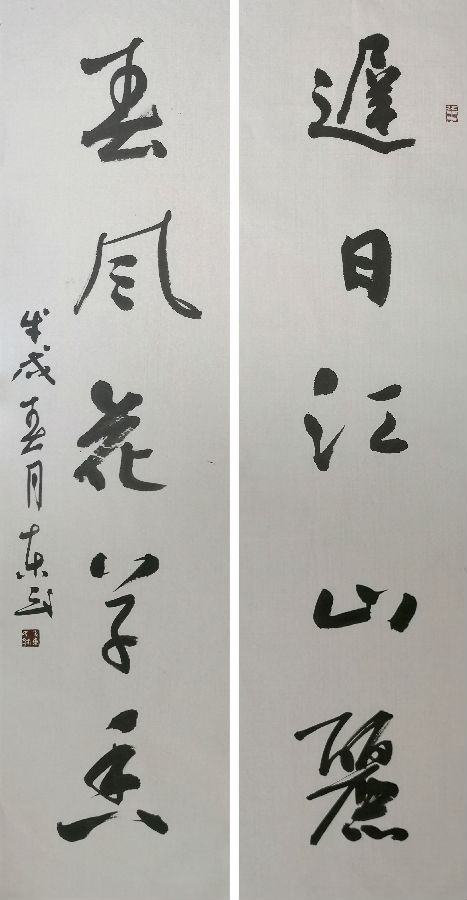 遲日江山麗
春風花草香
戊戌春月東武